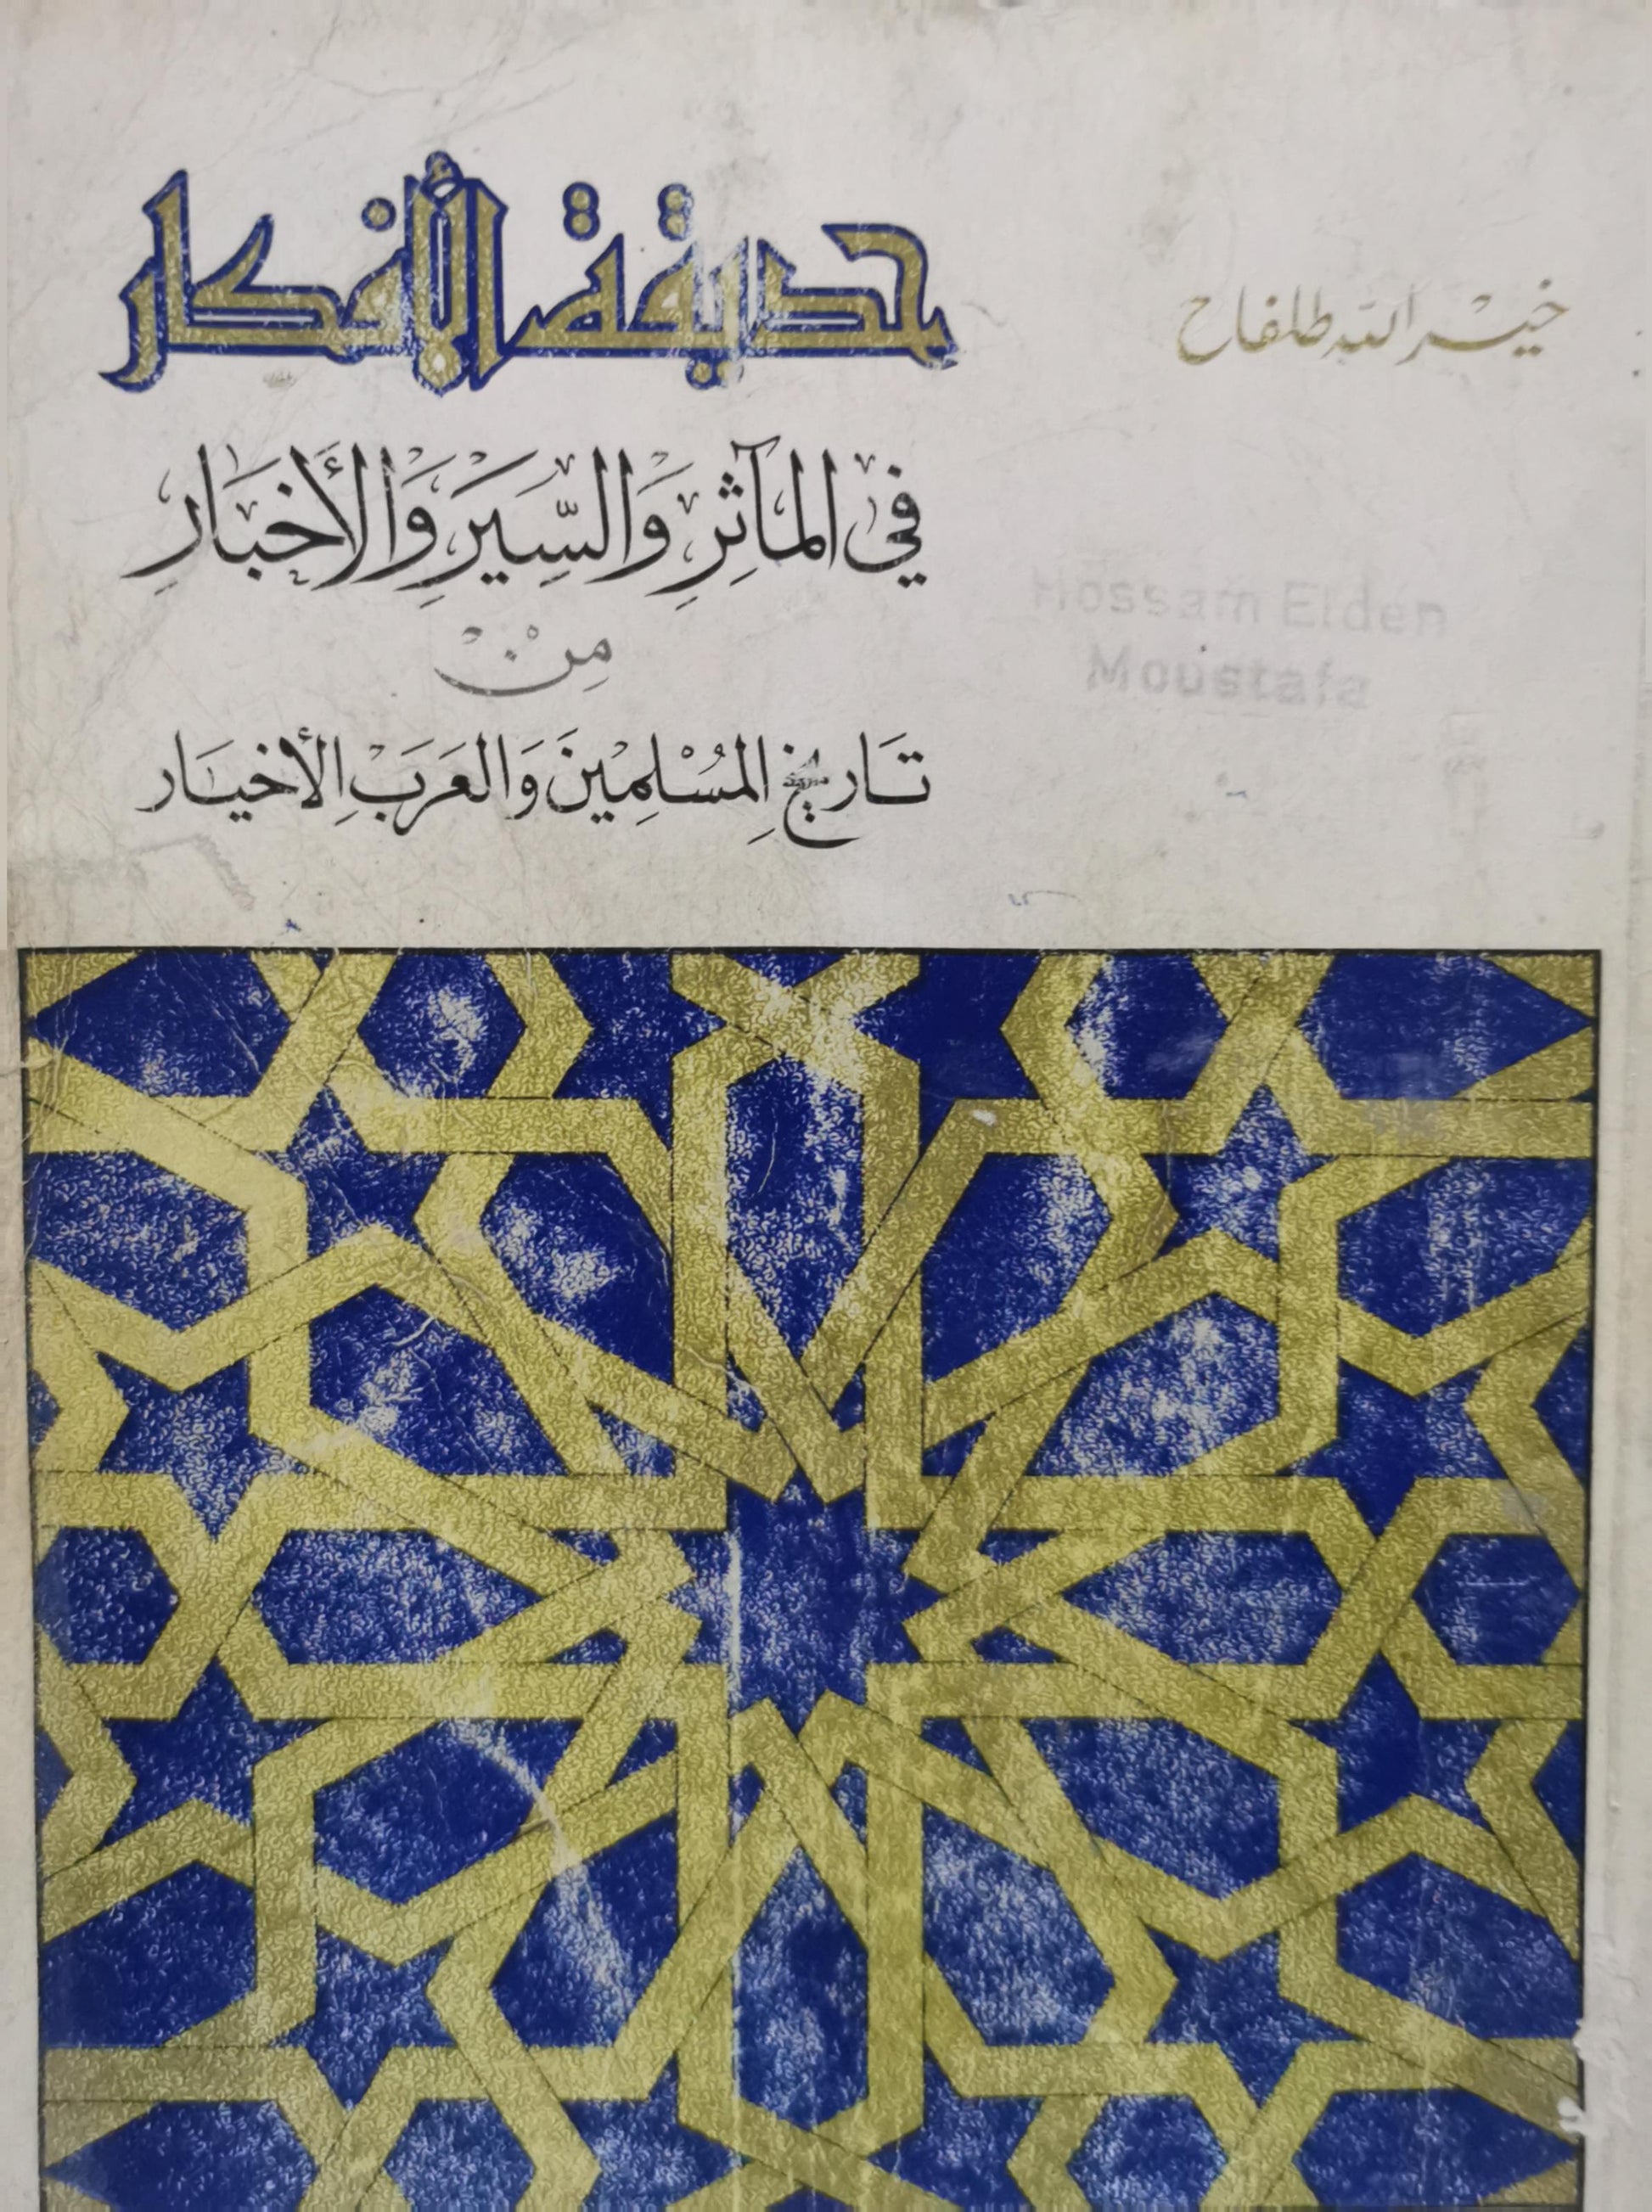 خيْر اللّه طلفاح
حديقة الأفكار
في المآثِرِ وَالسِّيَرِ وَالأَخبَارِ
مِنْ
تَاريخِ المُسْلِمِينَ وَالعَرَبِ الأخيَار
Hossam Elden
Moustafa